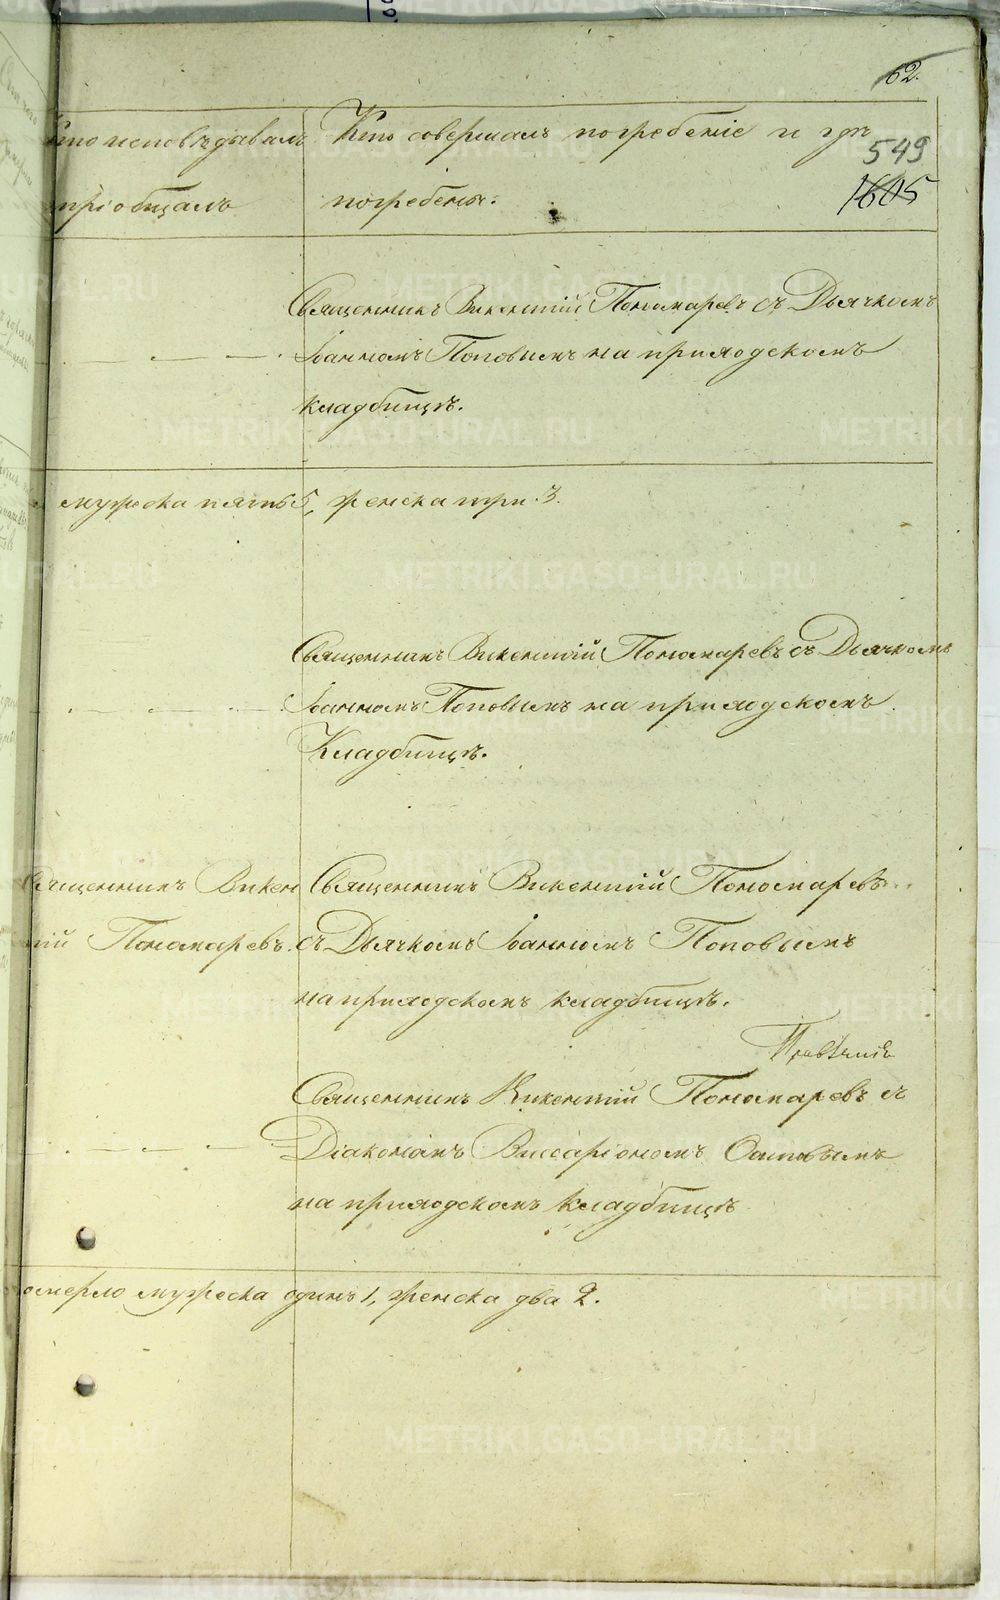 62.
549
1605
Кто исповѣдывалъ
пріобщалъ
Кто совершалъ погребеніе и гдѣ
погребены.
Священникъ Викентій Пономаревъ съ Дьячкомъ
Іоанномъ Поповымъ на приходскомъ
кладбищѣ.
мужеска пять 5, женска три. 3.
Священникъ Викентій Пономаревъ съ Дьячкомъ
Іоанномъ Поповымъ на приходскомъ
Кладбищѣ.
Священникъ Викен
тій Пономаревъ.
Священникъ Викентій Пономаревъ
съ Дьячкомъ Іоанномъ Поповымъ
на приходскомъ кладбищѣ.
Священникъ Викентій Пономаревъ съ
Діакономъ Виссаріономъ
на приходскомъ кладбищѣ
померло мужеска одинъ 1, женска два 2.
METRIKI.GASO-URAL.RU